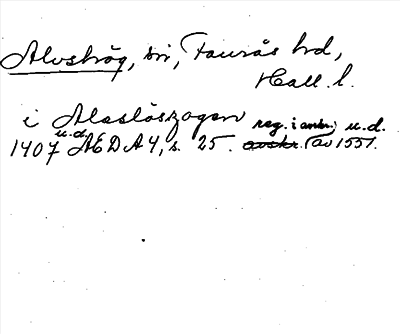 Alvshög, bri, Faurås hrd,
Hall. l.
i Alaslöszogen reg. i ambr. u.d.
1407 u.d. AEDA 4, s. 25. avskr. (av 1551.